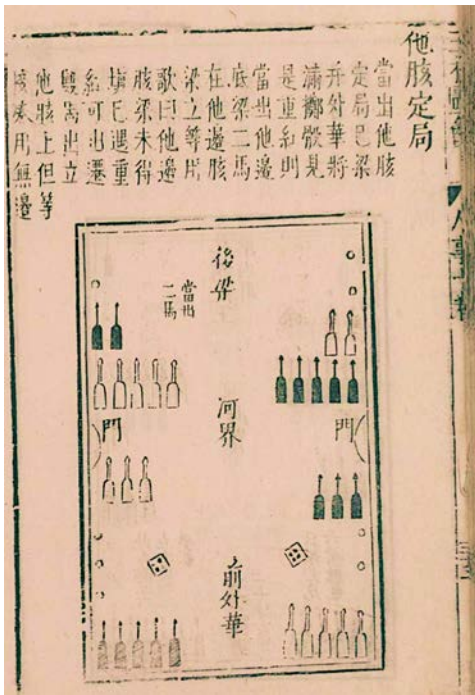 他胲定局
當出他胲
定局已梁
并外華將
滿擲骰見
是重紅則
當出他邊
底梁二馬
在他邊胲
梁立等
歌曰他邊
胲梁未得
填已遇重
紅可出遷
雙馬出立
他胲上但等
用無邊
後梁
當出
二馬
河界
門
門
前外華